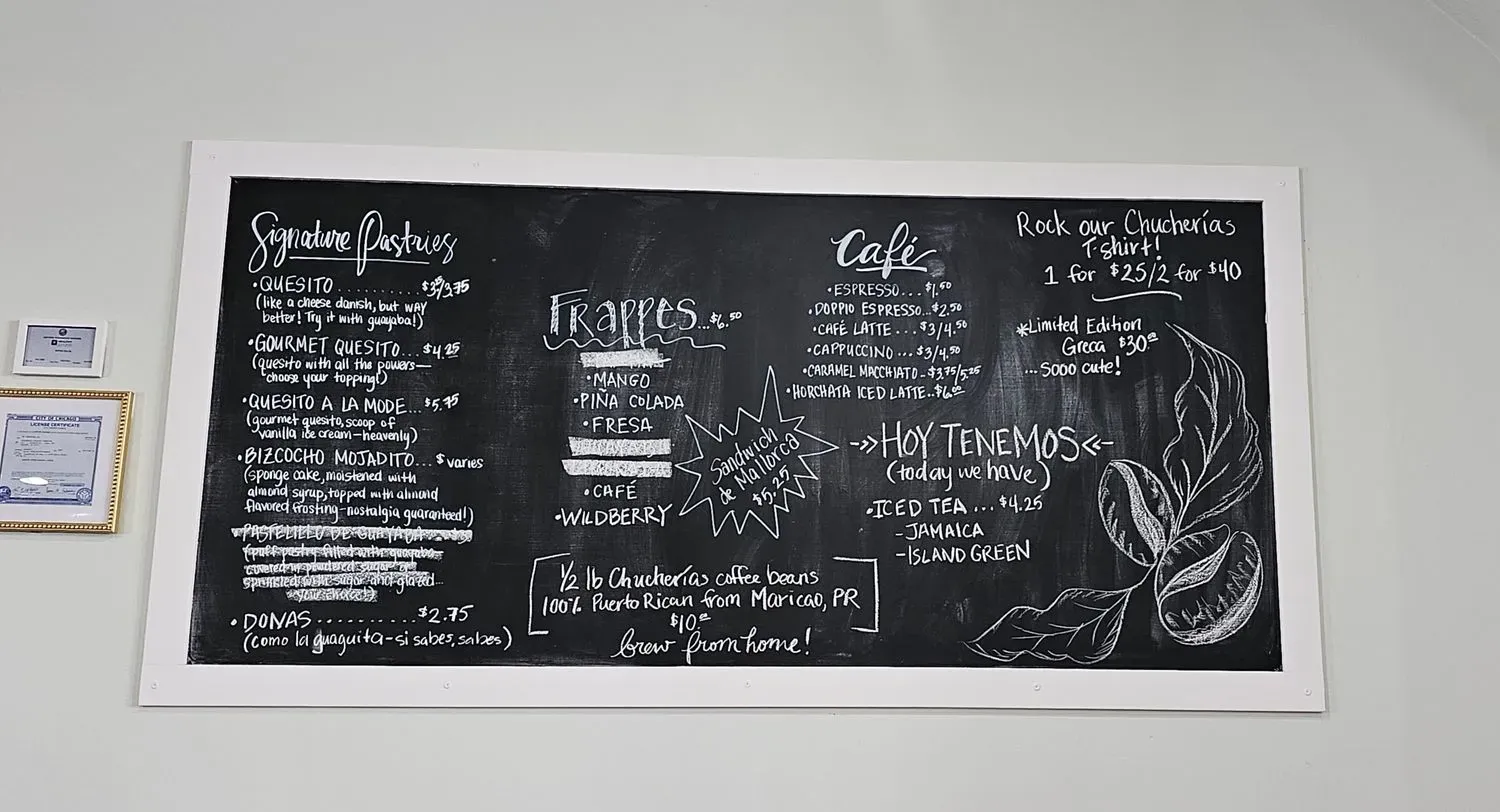 Signature Pastries
•QUESITO .......... $3/3.75
(like a cheese danish, but WAY
better! Try it with guayaba!)
•GOURMET QUESITO... $4.25
(quesito with all the powers—
choose your topping!)
•QUESITO A LA MODE... $5.75
(gourmet quesito, scoop of
vanilla ice cream—heavenly)
•BIZCOCHO MOJADITO... $varies
(sponge cake, moistened with
almond syrup, topped with almond
flavored frosting—nostalgia guaranteed!)
PASTELILLO DE GUAYABA
(puff pastry filled with guayaba
covered in powdered sugar or
sprinkled with sugar and glazed...
your choice!)
•DONAS ........... $2.75
(como la guaguita—si sabes, sabes)
FRAPPES...$6.50
•MANGO
•PIÑA COLADA
•FRESA
•CAFÉ
•WILDBERRY
Sandwich
de Mallorca
$5.25
1/2 lb Chucherías coffee beans
100% Puerto Rican from Maricao, PR
$10.00
brew from home!
Café
•ESPRESSO... $1.50
•DOPPIO ESPRESSO... $2.50
•CAFÉ LATTE ... $3/4.50
•CAPPUCCINO ... $3/4.50
•CARAMEL MACCHIATO.. $3.75/5.25
•HORCHATA ICED LATTE.. $6.00
->>HOY TENEMOS<<-
(today we have)
•ICED TEA ... $4.25
-JAMAICA
-ISLAND GREEN
Rock our Chucherías
T-shirt!
1 for $25/2 for $40
*Limited Edition
Greca $30.00
...sooo cute!
CITY OF CHICAGO
LICENSE CERTIFICATE